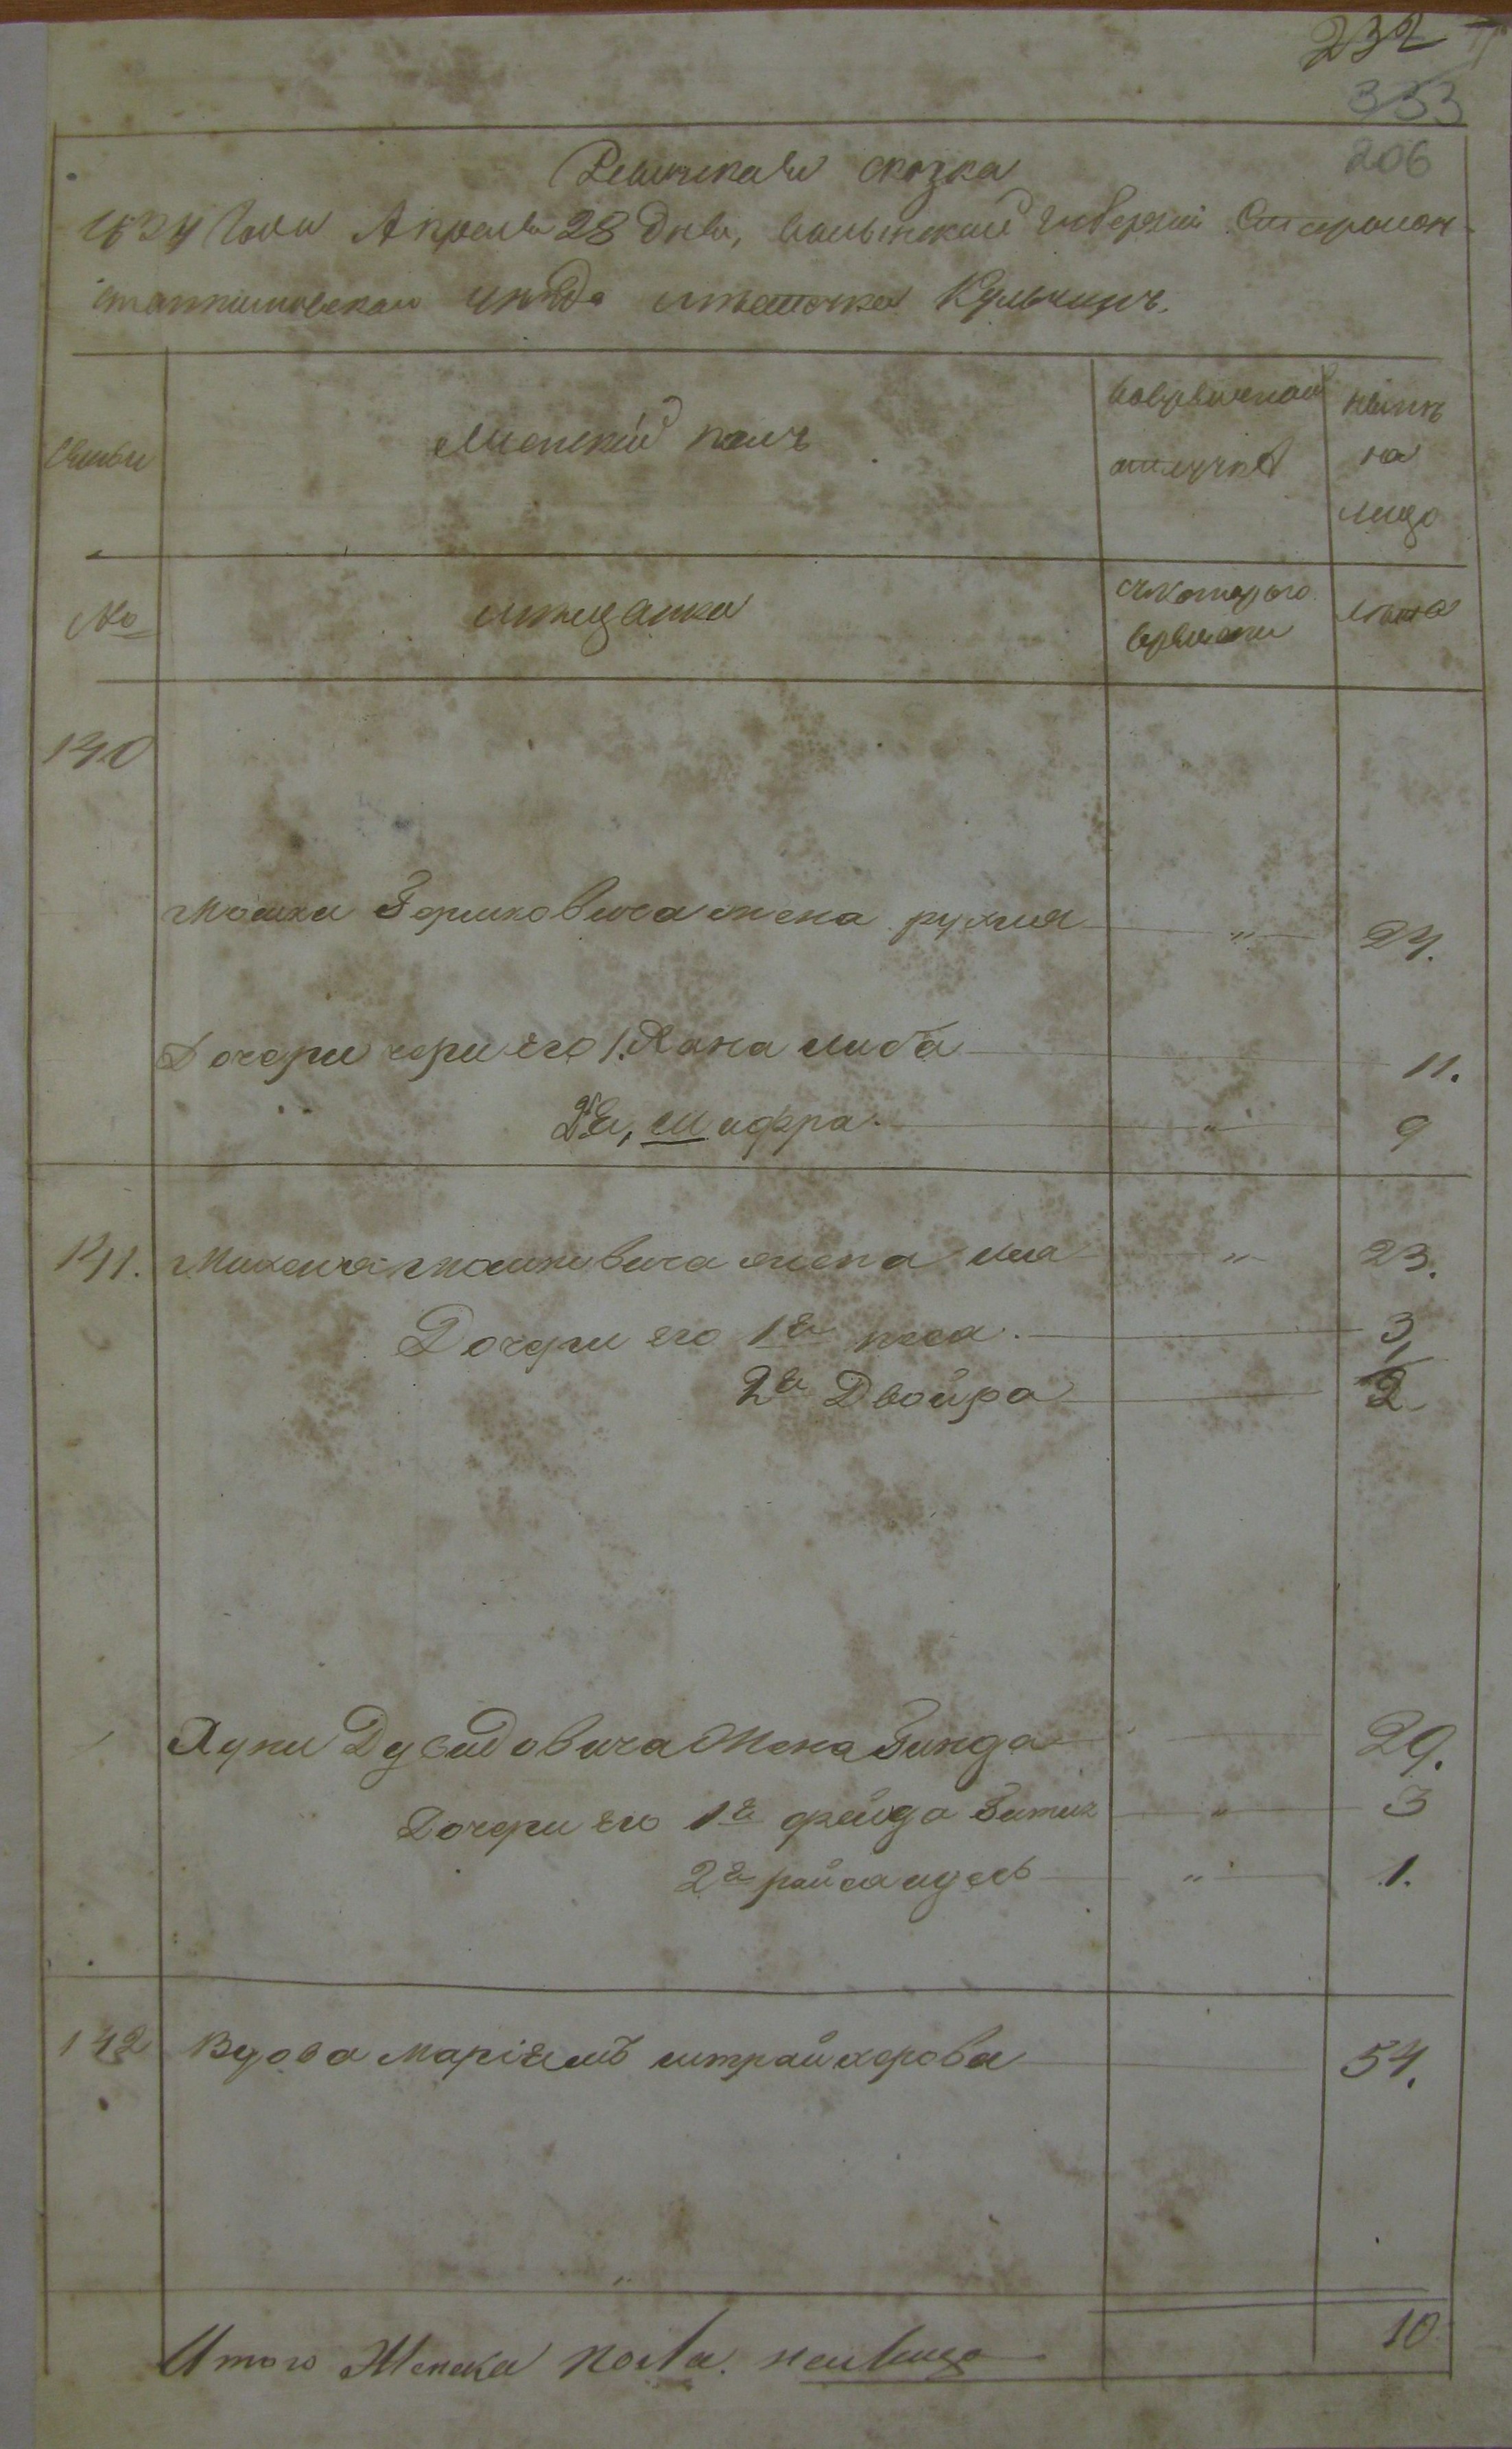 232
333
206
Ревизская сказка
1834 Года Апреля 28 Дня, волынской губернiи Старокон-
стантиновскаго уезда местечка Кульчинъ.
Семьи
Женскiй полъ
вовременной отлучке
ныне на лицо
№
мещанка
съкоторого времени
лета
140
Мошка Гершковича жена рухля " 24.
Дочери его 1. Хана либа 11.
2я, Шифра. " 9
141.
Михеля Мошковича жена лея " 23.
Дочери его 1я песа. 3,
2я Двойра 2
Дувидовича Жена Гинда 29.
Дочери его 1я фейга Гитля " 3
2я райса идесь " 1.
142
Вдова марiемъ штрайхерова 54.
Итого Женска пола. налицо 10